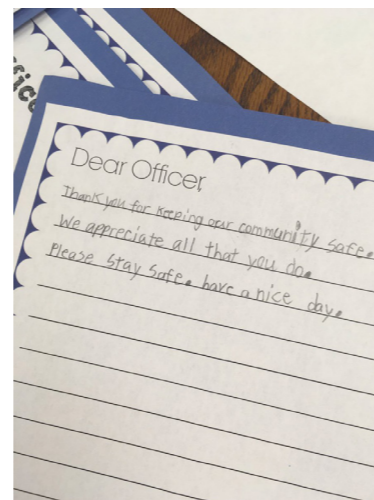 ffice
Dear Officer,
Thank you for keeping our community safe.
We appreciate all that you do.
Please stay safe. have a nice day.